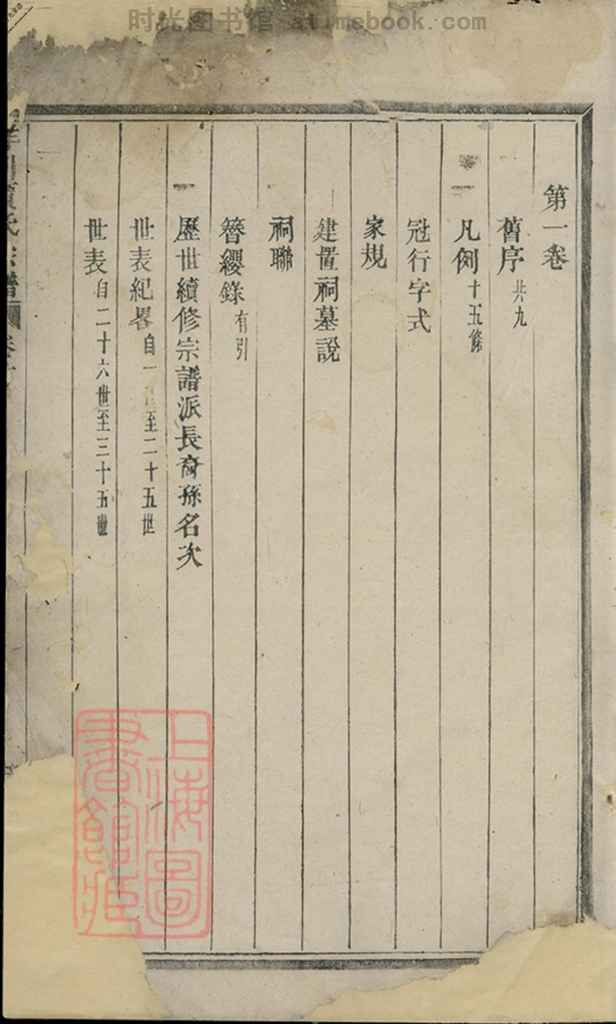 时光图书馆 atimebook.com
第一卷
舊序 共九
凡例 十五條
冠行字式
家規
建置祠墓說
祠聯
簪纓錄 有引
歷世續修宗譜派長裔孫名次
世表紀畧 自一世至二十五世
世表 自二十六世至三十五世
氏宗譜
上海圖書館藏